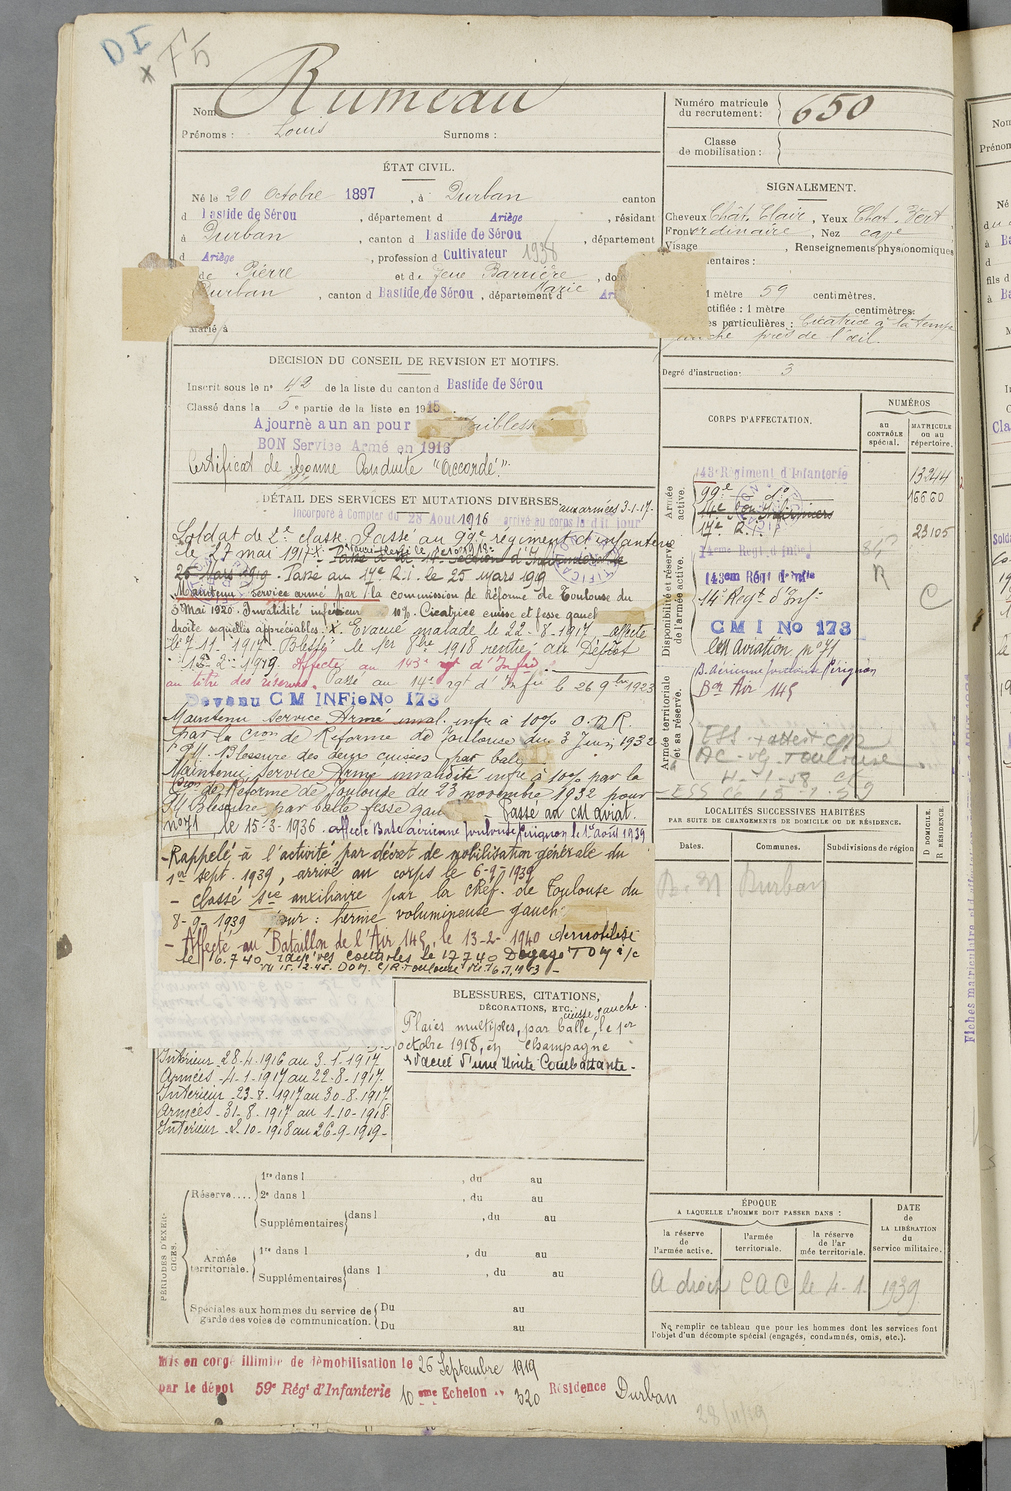 DI
x F5
Nom Rumeau
Prénoms : Louis Surnoms :
Numéro matricule du recrutement : 650
Classe de mobilisation :
ÉTAT CIVIL.
Né le 20 Octobre 1897, à Durban canton
d Bastide de Sérou, département d Ariège, résidant
à Durban, canton d Bastide de Sérou, département
d Ariège, profession d Cultivateur 1938
de Pierre et de Barrière Marie
Durban, canton d Bastide de Sérou, département d
Marié à
SIGNALEMENT.
Cheveux Chât. Clair, Yeux Chat. Vert
Front ordinaire, Nez cave
Visage , Renseignements physionomiques
mentaires :
1 mètre 59 centimètres.
ctifiée : 1 mètre centimètres.
es particulières : Cicatrice à la tempe
gauche près de l'œil.
Degré d'instruction : 3
DÉCISION DU CONSEIL DE REVISION ET MOTIFS.
Inscrit sous le n° 42 de la liste du canton d Bastide de Sérou
Classé dans la 5e partie de la liste en 1915
Ajourné a un an pour faiblesse
BON Service Armé en 1916
Certificat de bonne Conduite "Accordé".
DÉTAIL DES SERVICES ET MUTATIONS DIVERSES.
aux armées 3-1-17.
Incorporé à Compter du 28 Aout 1916 arrivé au corps le dit jour
Soldat de 2e classe. Passé au 99e régiment d'infanterie
le 27 mai 1917 X. Passé à la
25 Mars 1919. Passé au 17e R.I. le 25 mars 1919
Maintenu service armé par la commission de Réforme de Toulouse du
3 Mai 1920. Invalidité inférieure 10%. Cicatrice cuisse et fesse gauche
droite séquelles appréciables. X. Evacué malade le 22-8-1917 affecté
le 7 11 1917. Blessé le 1er 8bre 1918 rentré au Dépôt
16 2 1919. Affecté au 143e rgt d'Infie
au titre des réserves. Passé au 14e rgt d'Infie le 26 9bre 1923
Devenu C M INFie No 173
Maintenu Service Armé inval. infre à 10% O.D.R.
par la Cion de Réforme de Toulouse du 3 Juin 1932
P. Blessure des deux cuisses par balle
Maintenu Service Armé invalidité infre à 10% par la
Cion de Réforme de Toulouse du 23 novembre 1932 pour
Blessure par balle fesse gau Passé au CM aviat.
n°71, le 15-3-1936. affecté Base aérienne Toulouse Pérignon le 1er août 1939
- Rappelé à l'activité par décret de mobilisation générale du
1er sept. 1939, arrivé au corps le 6-9-1939
- classé sce auxiliaire par la de Toulouse du
8-9-1939 pour : hernie volumineuse gauch
- Affecté au Bataillon de l'Air 145, le 13-2-1940 démobilisé
le 16.7.40
CORPS D'AFFECTATION.
NUMÉROS
au CONTRÔLE spécial.
MATRICULE ou au répertoire.
Armée active.
143e Régiment d'Infanterie 13244
99e do 16660
17e R.I. 23105
Disponibilité et réserve de l'armée active.
14eme Regt d'Infie
143em Régt d'Infie
14e Regt d'Infie
C M I No 173
Cen aviation n° 71
Armée territoriale et sa réserve.
B. Aérienne Toulouse Pérignon
Bon Air 145
LOCALITÉS SUCCESSIVES HABITÉES
PAR SUITE DE CHANGEMENTS DE DOMICILE OU DE RÉSIDENCE.
Dates. Communes. Subdivisions de région D DOMICILE. R RÉSIDENCE.
Durban
BLESSURES, CITATIONS,
DÉCORATIONS, ETC.
Plaies multiples, par balle, cuisse gauche, le 1er
octobre 1918, en Champagne
évacué d'une Unité Combattante -
Intérieur 28-4-1916 au 3-1-1917
Armées - 4-1-1917 au 22-8-1917
Intérieur - 23-8-1917 au 30-8-1917
Armées - 31-8-1917 au 1-10-1918
Intérieur - 2-10-1918 au 26-9-1919 -
PÉRIODES D'EXERCICES.
Réserve....
1re dans l , du au
2e dans l , du au
Supplémentaires dans l , du au
Armée territoriale.
1re dans l , du au
Supplémentaires dans l , du au
Spéciales aux hommes du service de garde des voies de communication.
Du au
Du au
ÉPOQUE
A LAQUELLE L'HOMME DOIT PASSER DANS :
la réserve de l'armée active.
l'armée territoriale.
la réserve de l'armée territoriale.
DATE de LA LIBÉRATION du service militaire.
A droit CAC le 4-1-1939
Ne remplir ce tableau que pour les hommes dont les services font
l'objet d'un décompte spécial (engagés, condamnés, omis, etc.).
Mis en congé illimité de démobilisation le 26 Septembre 1919
par le dépot 59e Régt d'Infanterie 10 eme Echelon n° 320 Résidence Durban
28/11/19